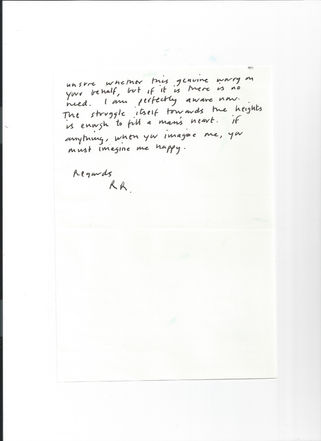 unsure whether this genuine worry on
your behalf, but if it is there is no
need. I am perfectly aware now.
The struggle itself towards the heights
is enough to fill a man's heart. if
anything, when you imagine me, you
must imagine me happy.
Regards
RR.